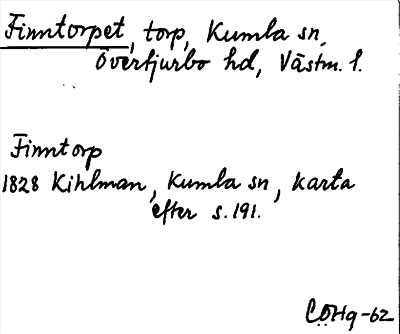 Finntorpet, torp, Kumla sn,
Övertjurbo hd, Västm. l.
Finntorp
1828 Kihlman, Kumla sn, karta
efter s. 191.
CÖHg-62